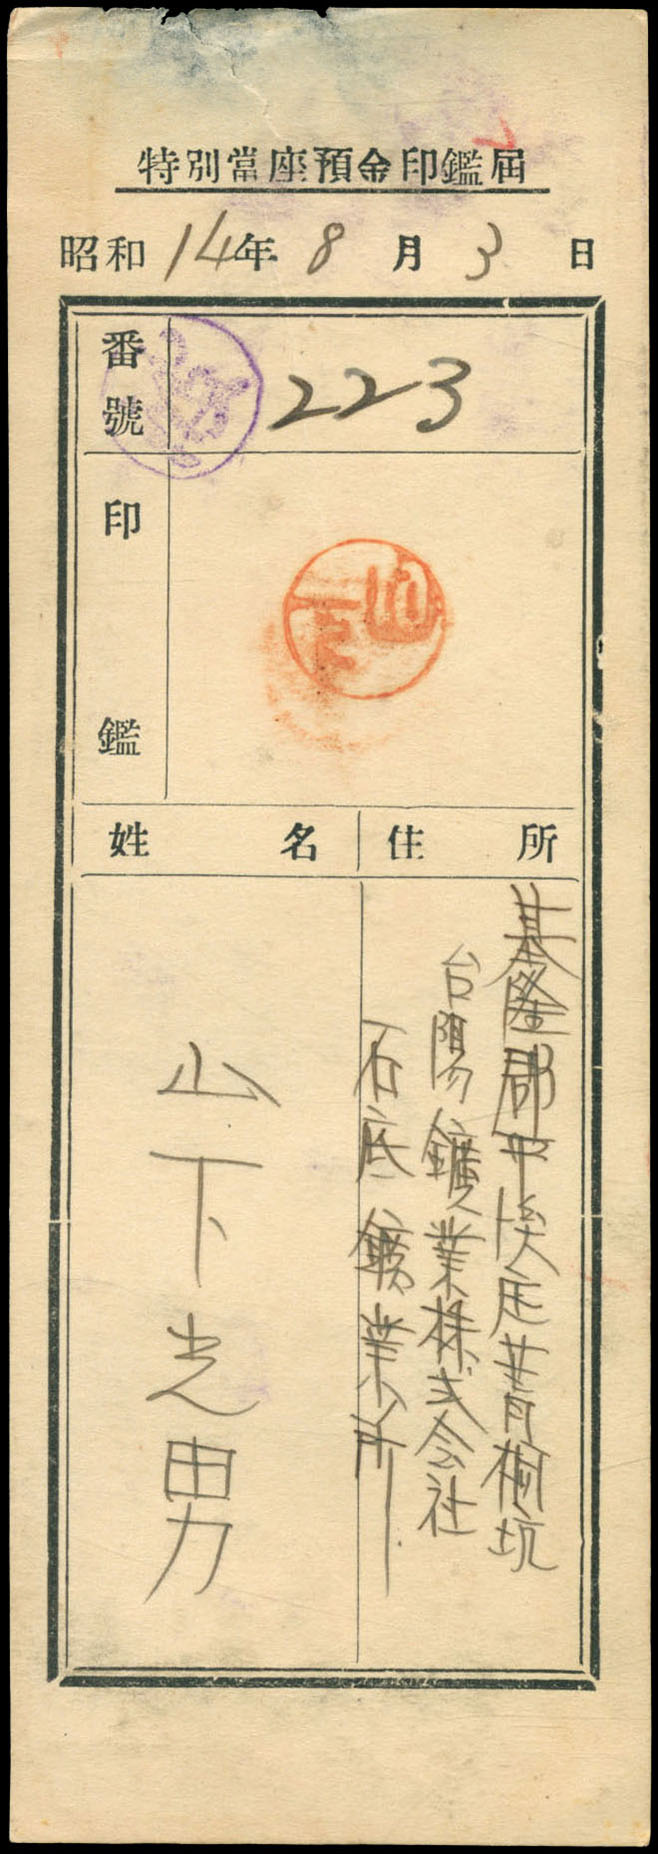 特別當座預金印鑑届
昭和14年8月3日
番號
223
印鑑
山下
姓名
住所
基隆郡平溪庄菁桐坑
台陽鑛業株式会社
石底鑛業所
山下光男